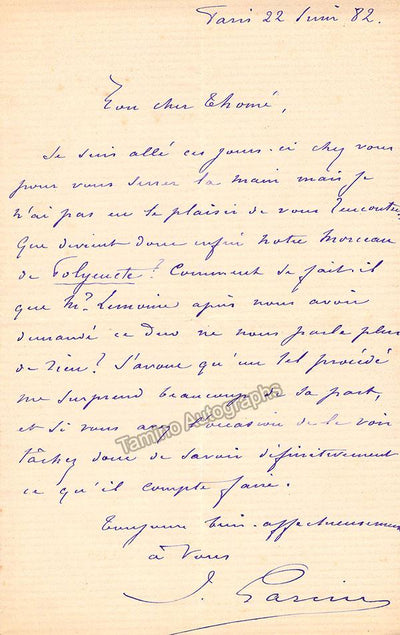 Paris 22 Juin 82.
Mon cher Thomé,
Je suis allé ces jours-ci chez vous
pour vous serrer la main mais je
n'ai pas eu le plaisir de vous rencontrer.
Que devient donc enfin notre morceau
de Polyeucte? Comment se fait-il
que Mr. Lemoine après nous avoir
demandé ce Duo ne nous parle plus
de rien? J'avoue qu'un tel procédé
me surprend beaucoup de sa part,
et si vous avez l'occasion de le voir
tâchez donc de savoir définitivement
ce qu'il compte faire.
Toujours bien affectueusement
à Vous
J. Garcin
Tamino Autographs